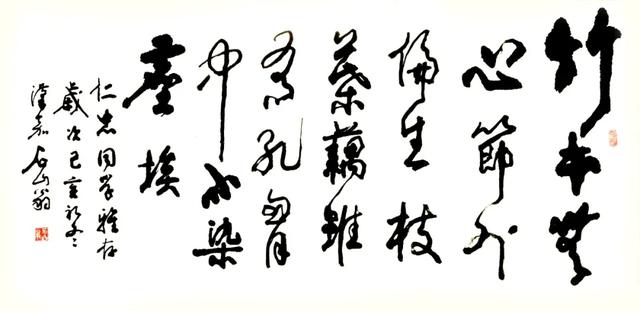 竹本無
心節外
偏生枝
葉藕雖
有孔胸
中不染
塵埃
仁忠同學雅存
歲次己亥初冬
漢嘉石山翁